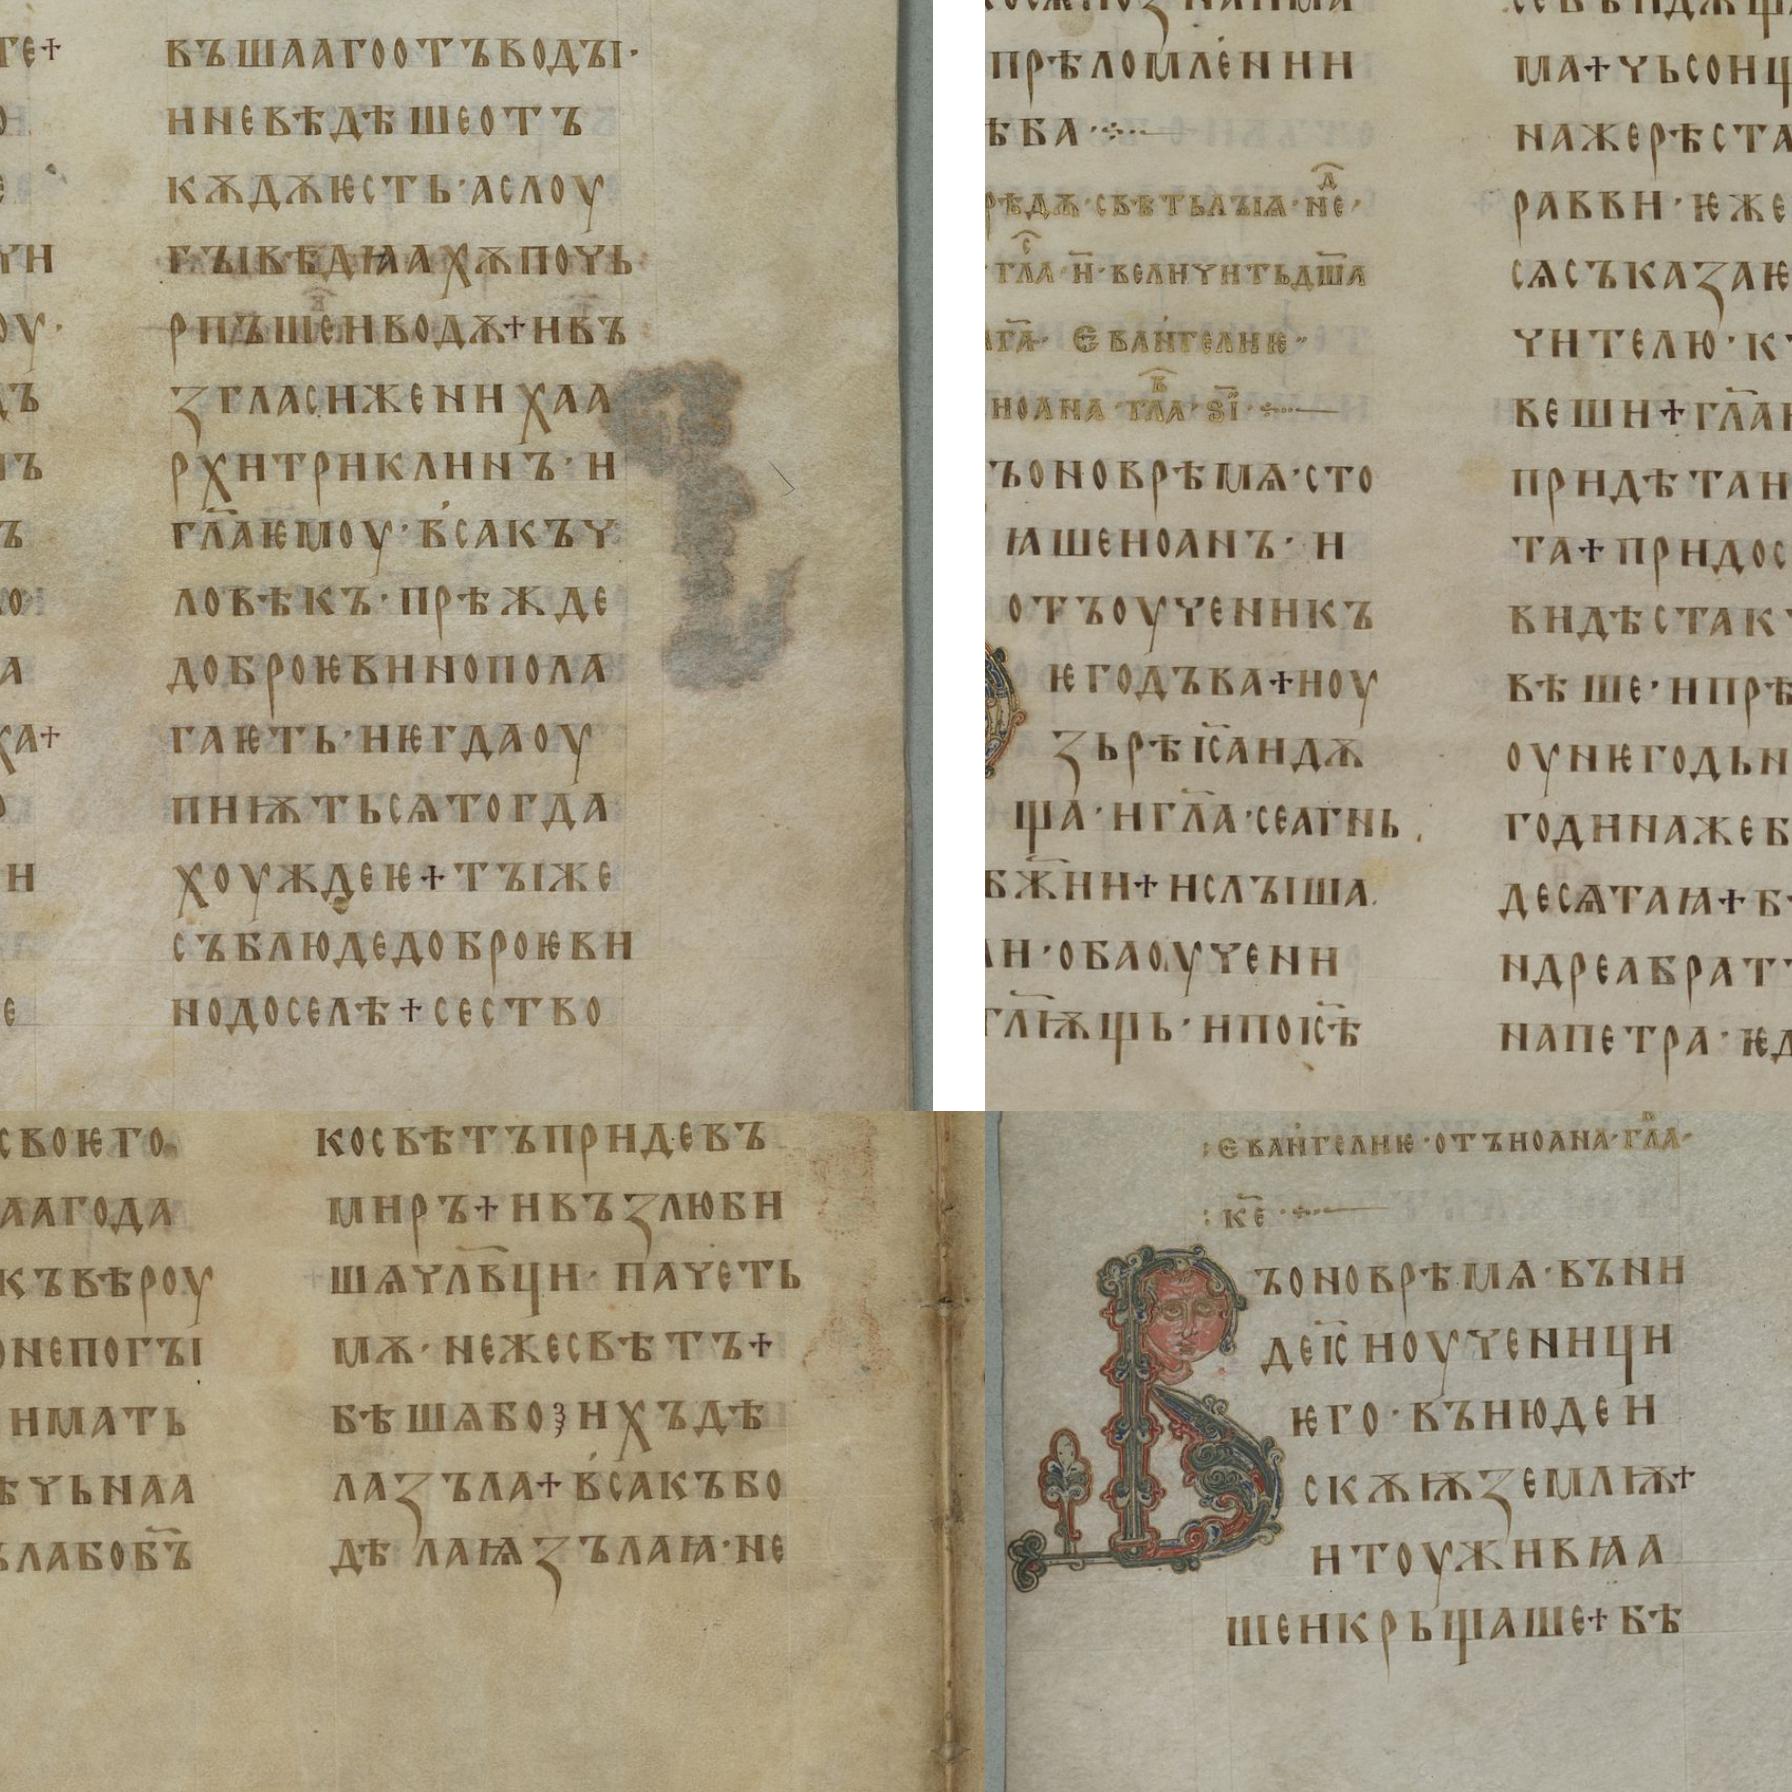 те+
въшаагоотъводꙑ·
ниевѣдѣшеотъ
кѫдѫѥсть·аслоу
гꙑвѣдѩахѫпоуь
рпъшеиводѫ+ивъ
згласижениха а
рхитриклинъ·и
гл҃аѥмоу·в҆сакъч
ловѣкъ·прѣжде
доброѥвинопола
гаѥть·иѥгдаоу
пиѭтьсѧтогда
хоуждеѥ+тꙑже
съблюдедоброѥви
нодоселѣ+сество
прѣломлении
ѣба·
рѣдѫ·свѣтьлꙑѩ·не·д҃
гл҃а·и҃·величитьдш҃а
Еван҃гелиѥ·
иоана·гл҃а·ѕ҃і·
ъоноврѣмѧ·сто
ꙗшеиоанъ·и
отъоученикъ
ѥгодъва+иоу
зьрѣіс҃аидѫ
ща·игл҃а·сеагнь
бж҃ии+ислꙑша
ли·обаоучени
гл҃ѭщь·ипоіс҃ѣ
ма+чьсоиц
нажерѣста
равви·ѥже
сѧсъказаѥ
чителю·к
веши+гл҃а
придѣтаи
та+придос
видѣстак
вѣше·ипрѣ
оунѥгодьн
годинажеб
десѧтаꙗ+б
ндреабрат
напетра·ѥд
своѥго
аагода
къвѣроу
онепогꙑ
имать
ѣчьнаа
ълабобъ҃
косвѣтъпридевъ
миръ+ивъзлюби
шѧчл҃вци·пачеть
мѫ·нежесвѣтъ+
бѣшѧбоихъдѣ
лазъла+в҆сакъбо
дѣлаѩзълаꙗ·не
Еван҃гелиѥ·отъиоана·гл҃а·
к҃е·
ъоноврѣмѧ·въни
деіс҃иоученици
ѥго·въиюдеи
скѫѭземлѭ+
итоуживꙗа
шеикрьщаше+бѣ